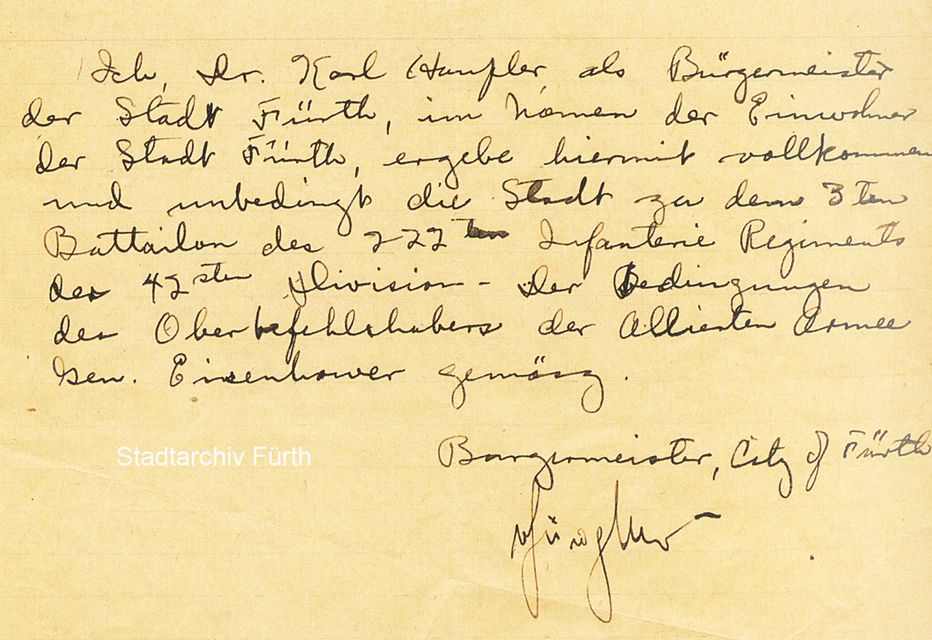 Ich, Dr. Karl Haupler als Bürgermeister
der Stadt Fürth, im Namen der Einwohner
der Stadt Fürth, ergebe hiermit vollkommen
und unbedingt die Stadt zu dem 3ten
Battailon des 222ten Infanterie Regiments
der 42sten Division - der Bedingungen
des Oberbefehlshabers der Allierten Armee
Gen. Eisenhower gemäsz.
Stadtarchiv Fürth
Burgermeister, City of Fürth